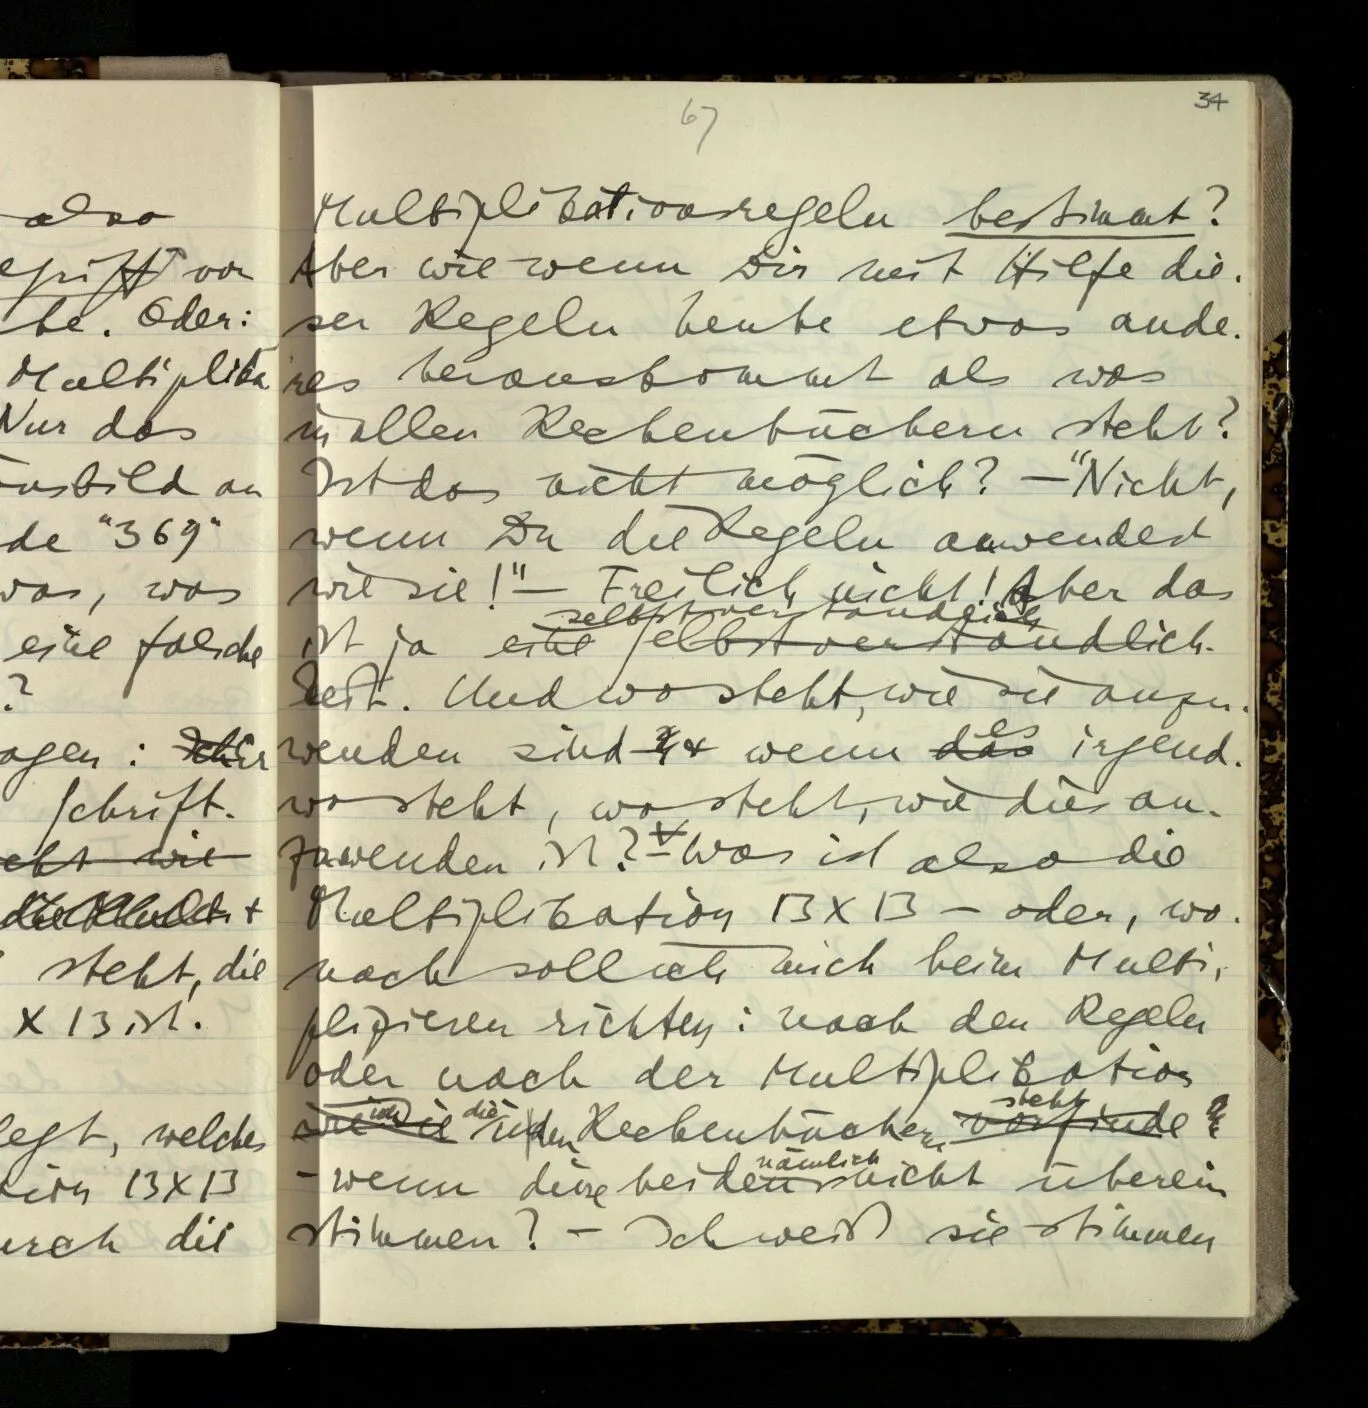 67
34
also
von
be. Oder:
Multiplika
Nur das
nsbild an
de "369"
was, was
eine falsche
?
agen: er
Schrift.
wie
steht, die
X 13 ist.
legt, welches
tion 13X13
urch die
Multiplikationsregeln bestimmt?
Aber wie wenn Dir mit Hilfe die-
ser Regeln heute etwas ande-
res herauskommt als was
in allen Rechenbüchern steht?
Ist das nicht möglich? – "Nicht,
wenn Du die Regeln anwendest
wie sie!" – Freilich nicht! Aber das
selbstverständlich
ist ja eine Selbstverständlich-
keit. Und wo steht, wie sie anzu-
es
wenden sind & wenn das irgend-
wo steht, wo steht, wie dies an-
zuwenden ist? – Was ist also die
Multiplikation 13X13 – oder, wo-
nach soll ich mich beim Multi-
plizieren richten: nach den Regeln
oder nach der Multiplikation
die steht
wie in den Rechenbüchern vorfinde
nämlich
– wenn diese beiden nicht überein
stimmen? – Ich weiß sie stimmen